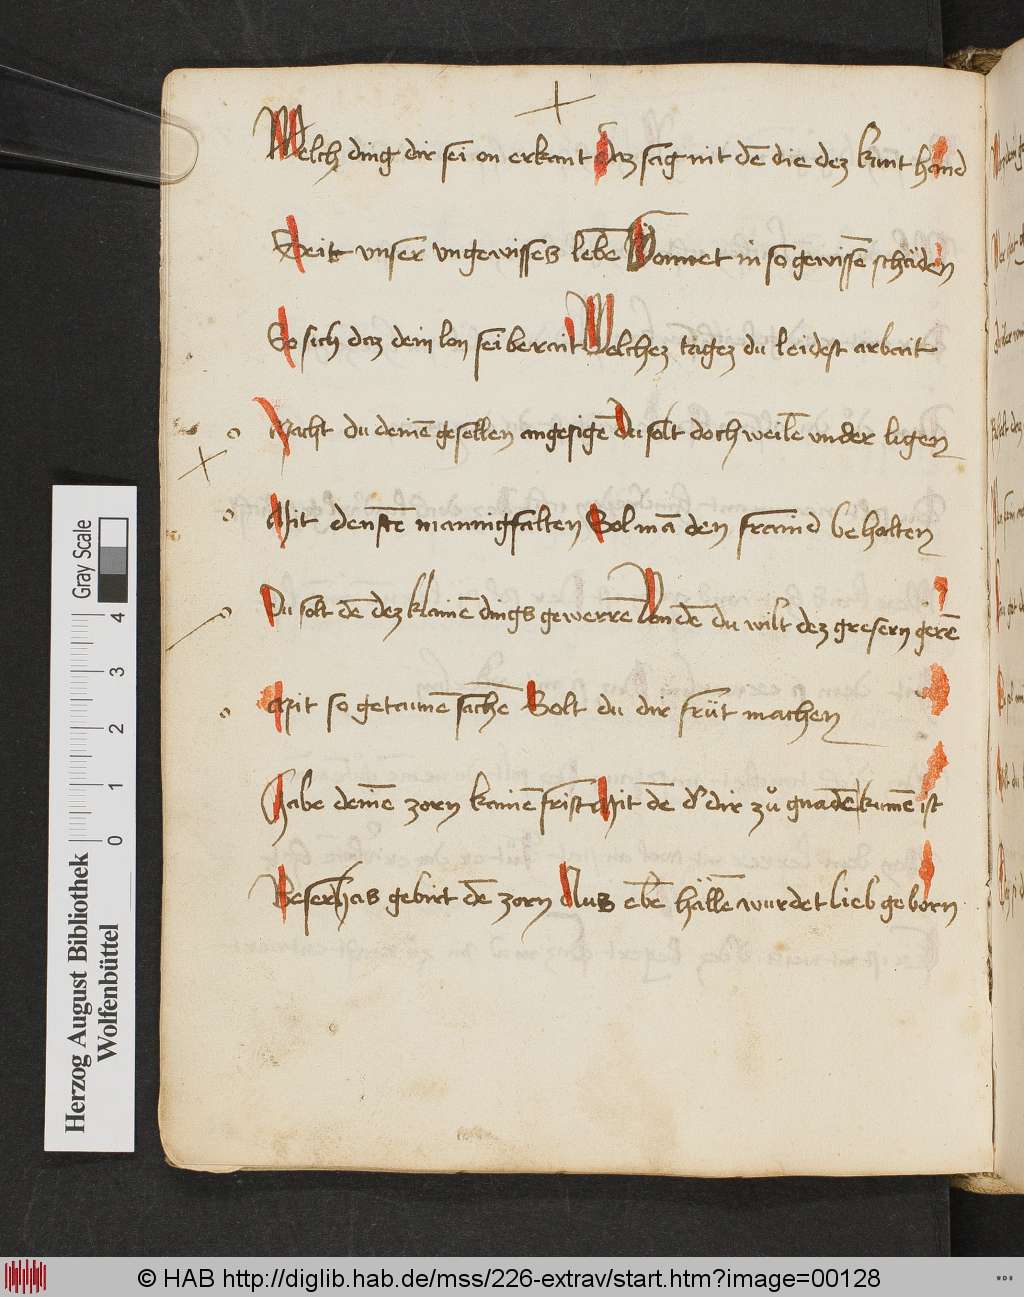 Welch ding dir sei on erkant Daz sag nit dē die dez kunt hand
Seit vnser vngewisses lebē Wonnet in so gewissē schäden
So sich daz dein lon sei berait Welchez tagez du leidest arbait
Macht du deinē gesellen angesigē Du solt doch weilē vnder ligen
Mit denstē mannigfalten Sol mā den fraind behalten
Du solt dē dez klainē dings gewerrē Von dē du wilt dez gresern gerē
Mit so getaunē sachē Solt du dir frūt machen
Habe deinē zorn kainē frist Mit dē d' dir zů gnadē kumē ist
Beser has gebirt dē zorn Aus ebē hällē wurdet lieb geborn
Herzog August Bibliothek
Wolfenbüttel
Gray Scale
0 1 2 3 4
© HAB http://diglib.hab.de/mss/226-extrav/start.htm?image=00128